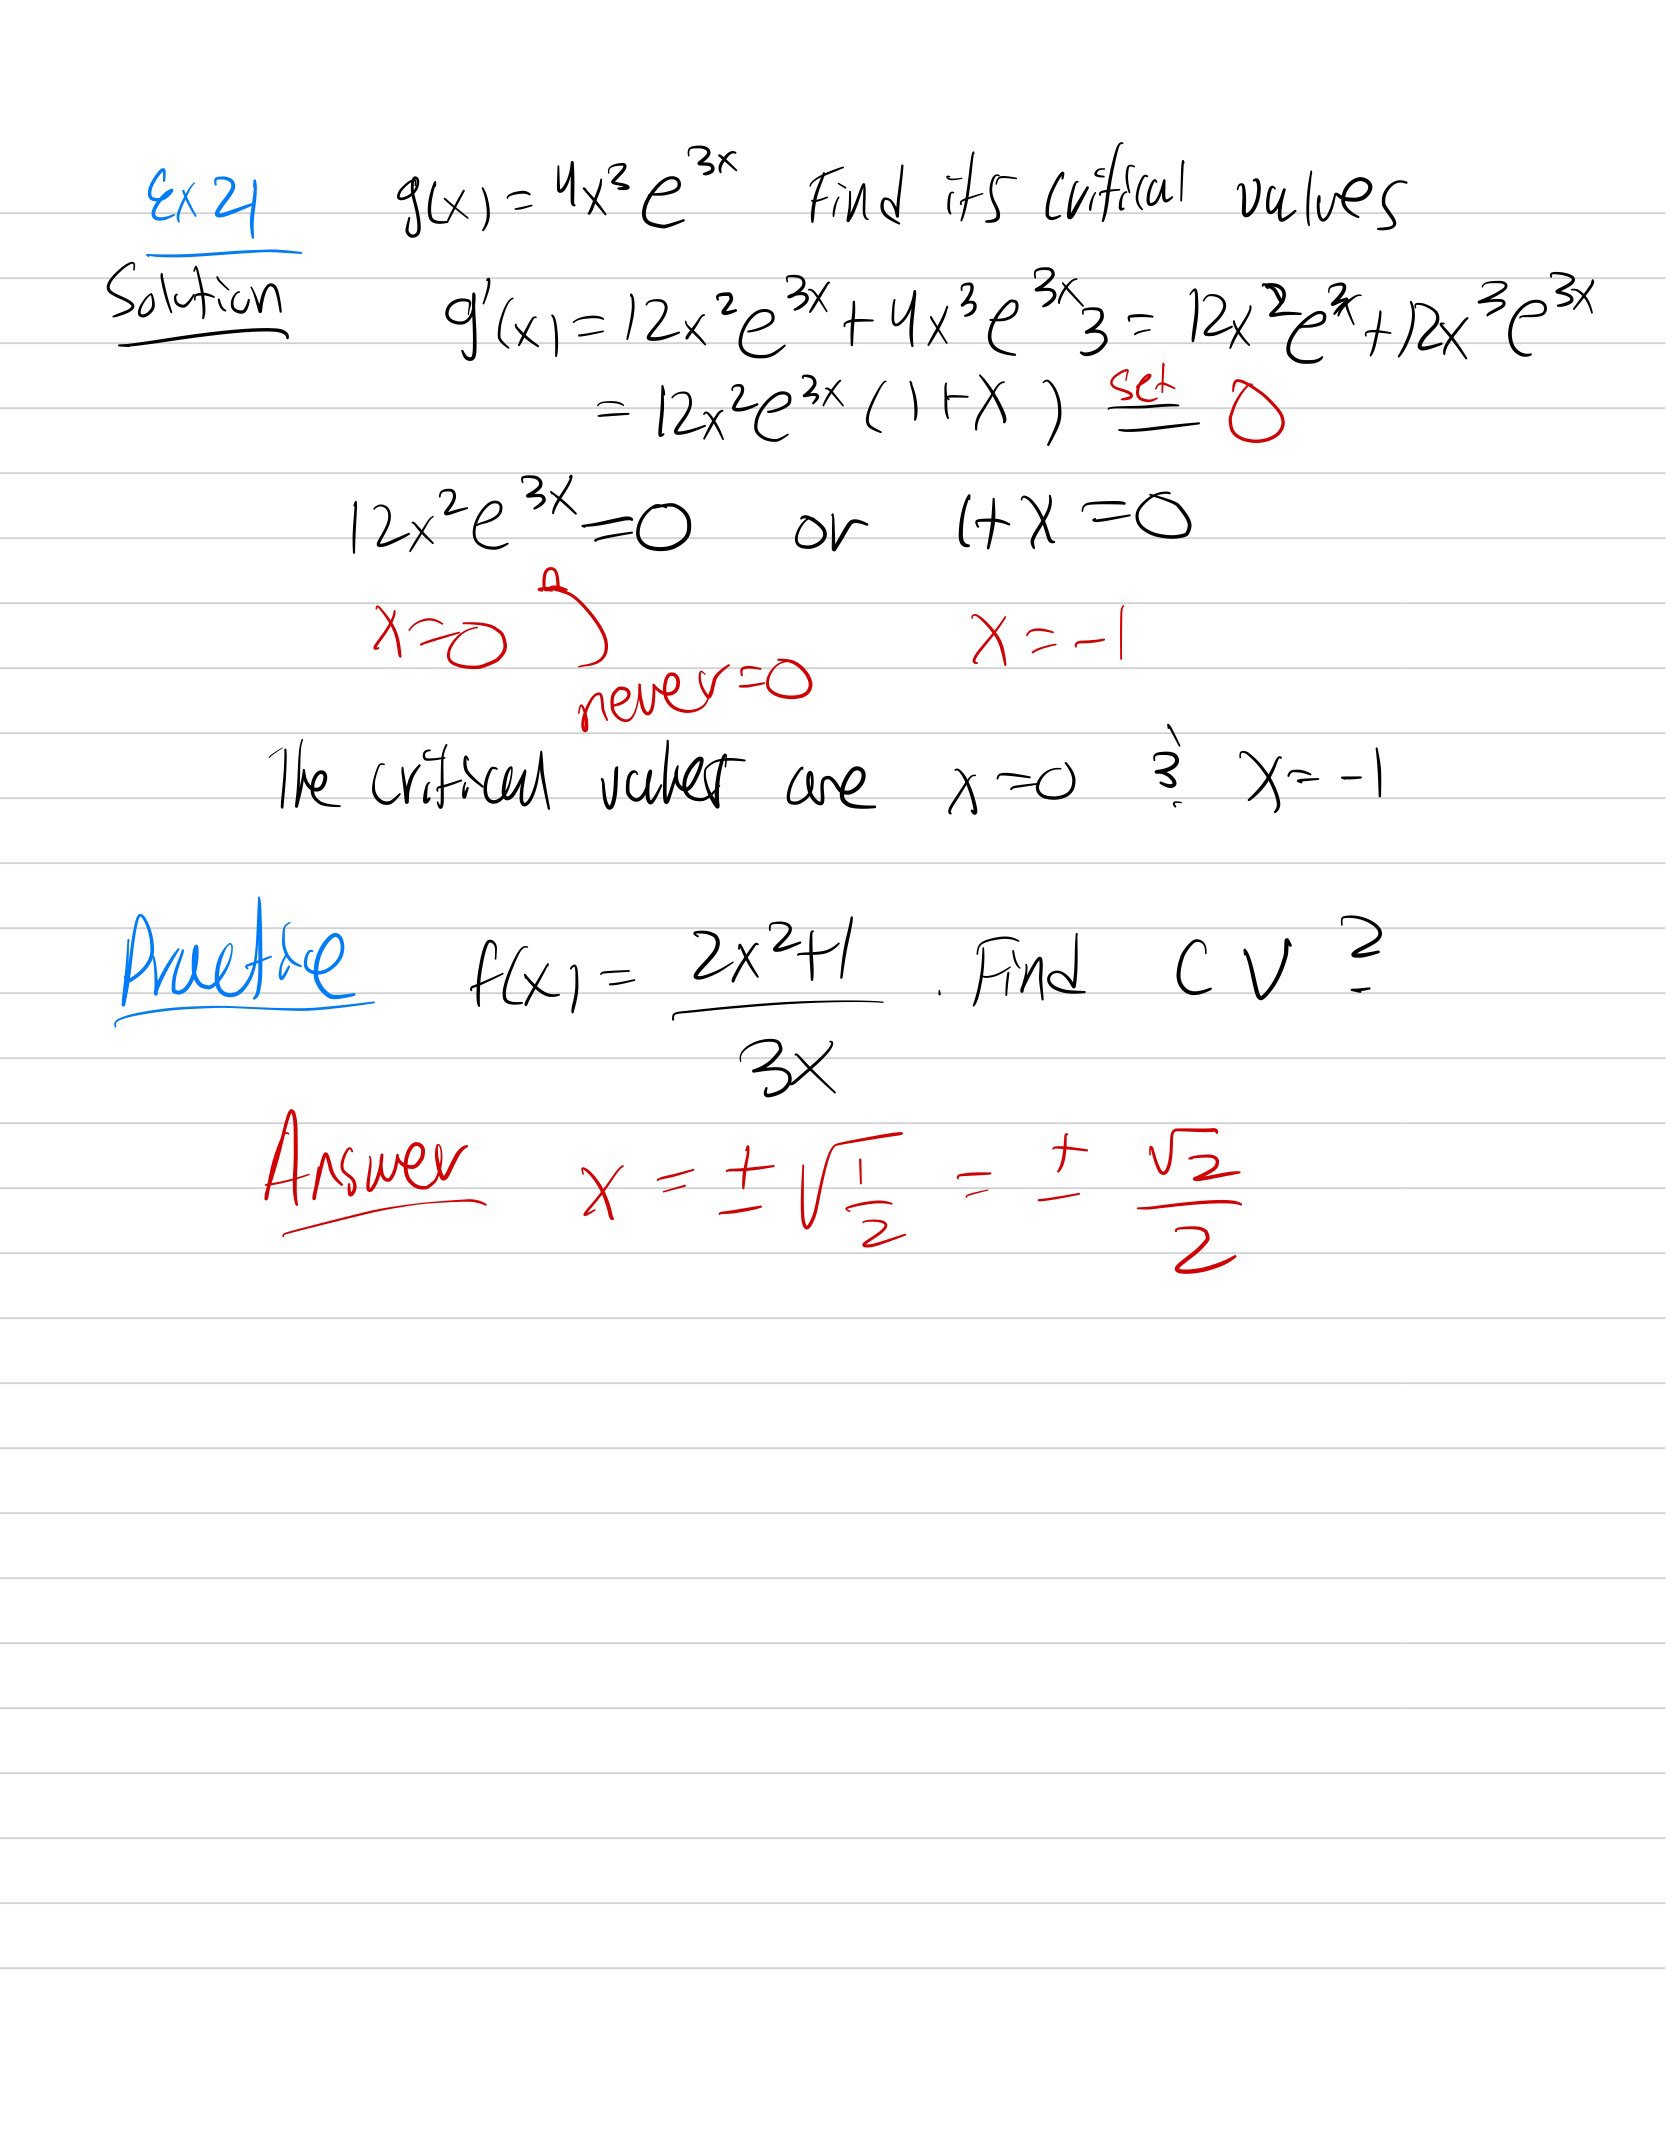 Ex 21 g(x) = 4x³e^{3x} Find its critical values
Solution g'(x) = 12x²e^{3x} + 4x³e^{3x}3 = 12x²e^{3x} + 12x³e^{3x}
= 12x²e^{3x}(1+x) set = 0
12x²e^{3x} = 0 or 1+x = 0
x=0 never=0 x=-1
The critical values are x=0 & x=-1
Practice f(x) = \frac{2x²+1}{3x} . Find CV?
Answer x = ± √\frac{1}{2} = ± \frac{√2}{2}